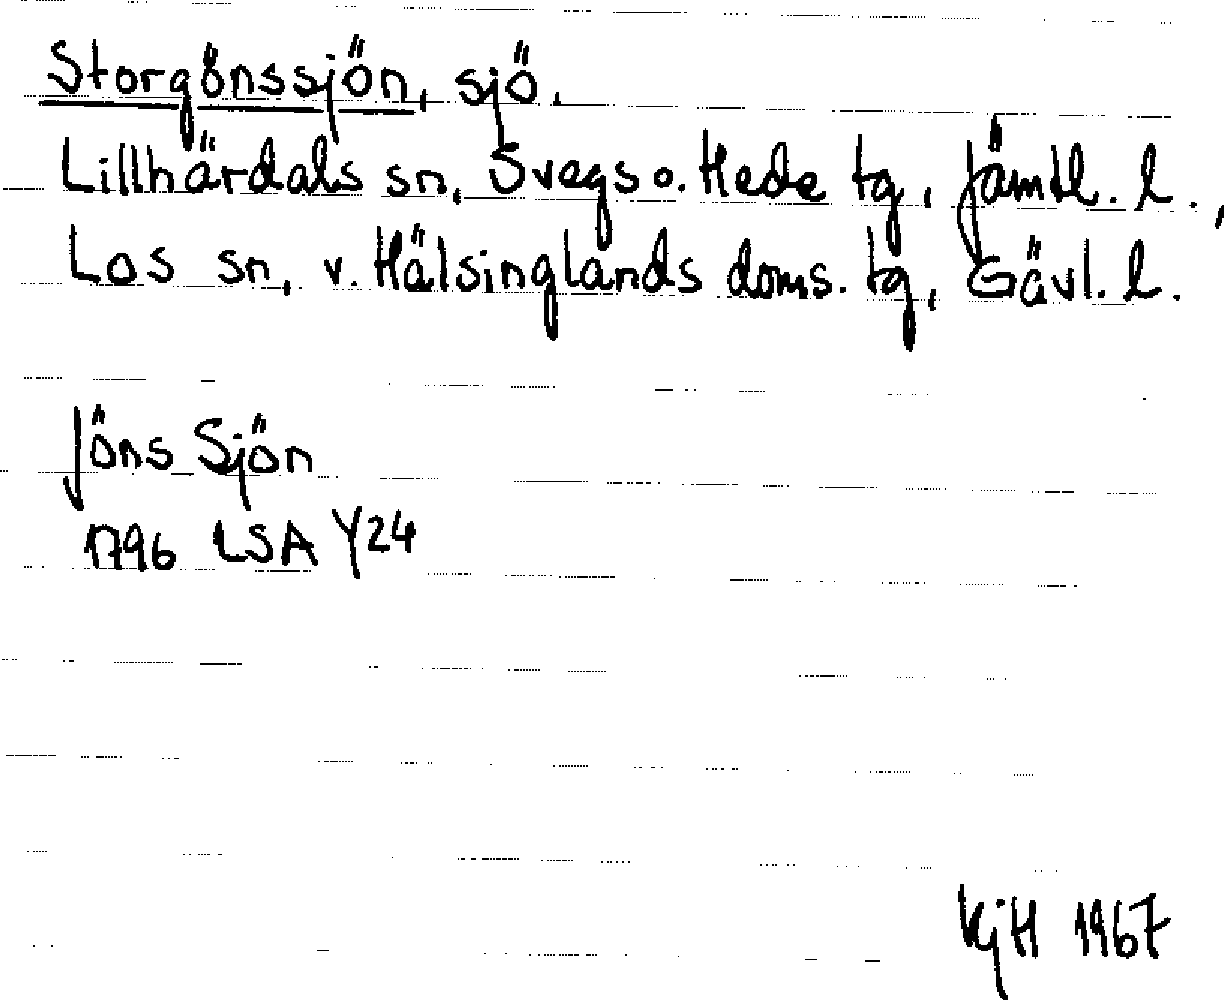 Storgönssjön, sjö.
Lillhärdals sn, Svegs o. Hede tg, Jämtl. l.,
Los sn, v. Hälsinglands doms. tg, Gävl. l.
Jöns Sjön
1796 LSA Y24
KjH 1967